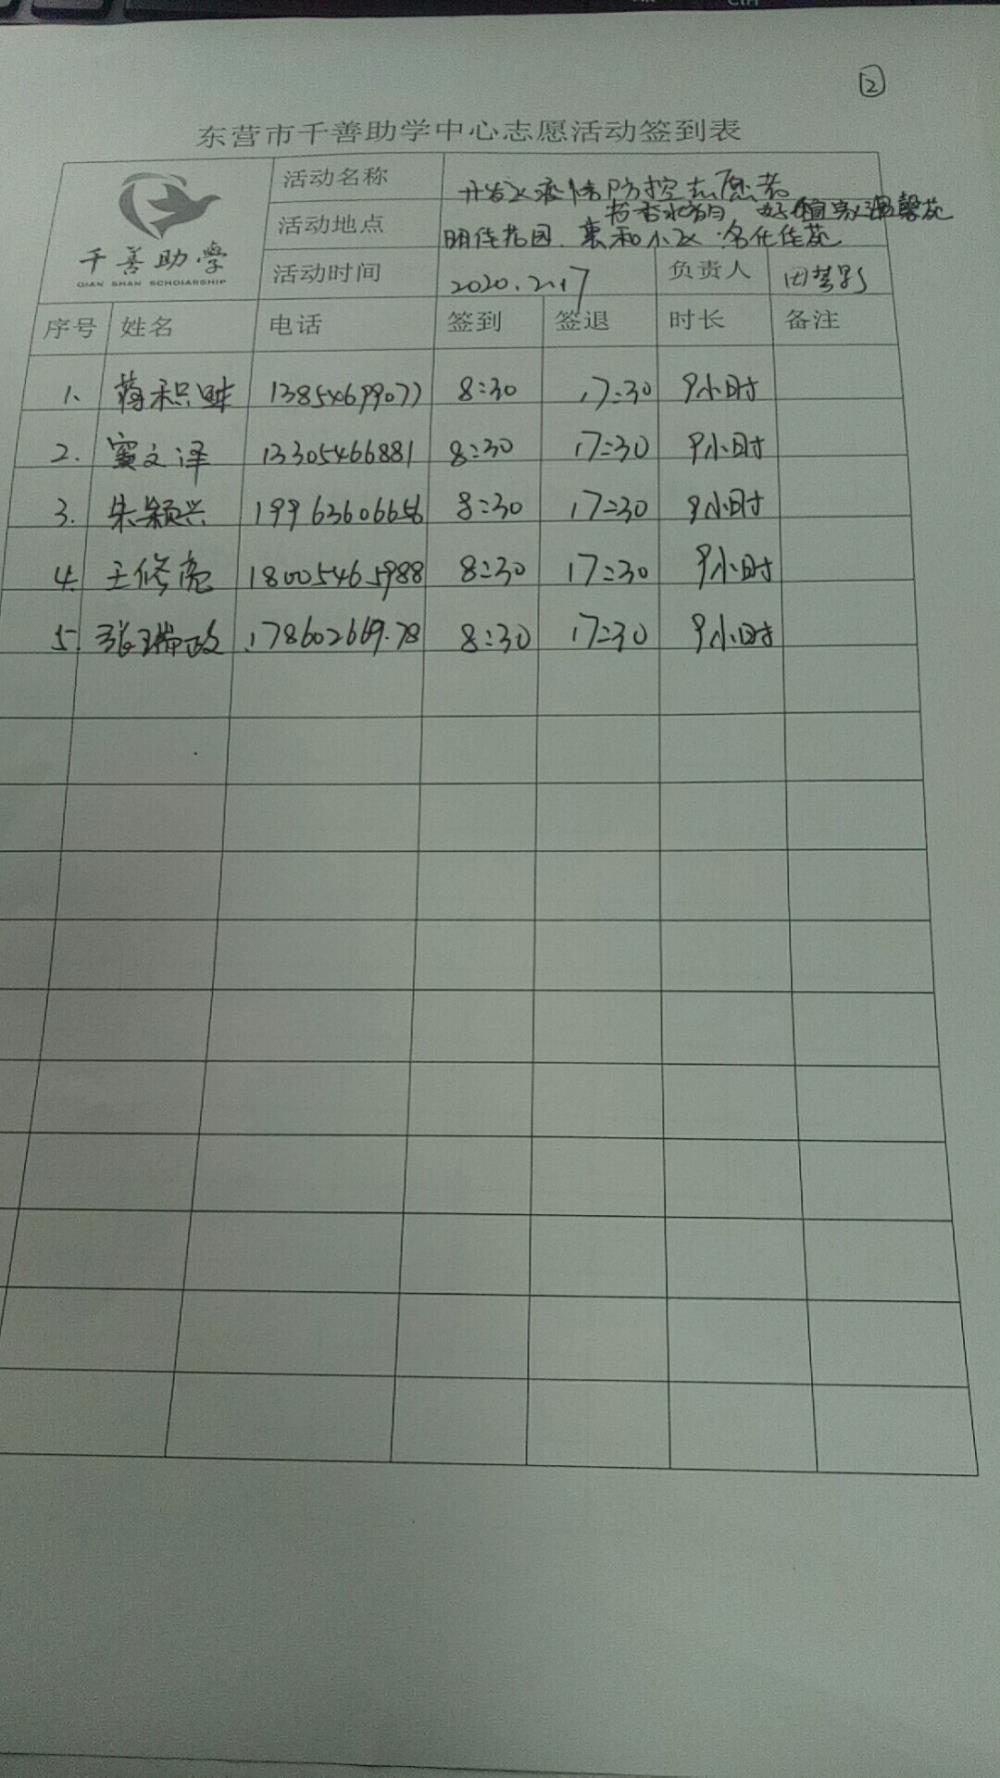 ②
东营市千善助学中心志愿活动签到表
千善助學
QIAN SHAN SCHOLARSHIP
活动名称 开发区疫情防控志愿者
活动地点 书香水岸
明佳花园、惠和小区
活动时间 2020.2.17 负责人
序号 姓名 电话 签到 签退 时长 备注
1. 13854699077 8:30 17:30 9小时
2. 窦文泽 13305466881 8:30 17:30 9小时
3. 朱颖兴 19963606656 8:30 17:30 9小时
4. 王修亮 18005465988 8:30 17:30 9小时
5. 张瑞政 17860266978 8:30 17:30 9小时